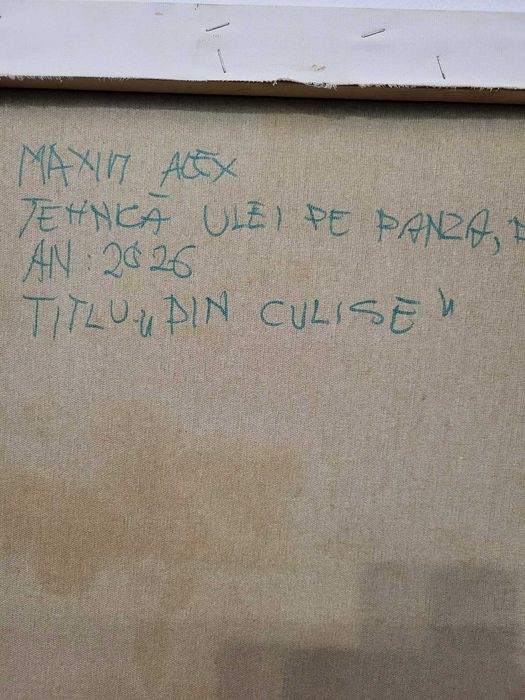 MAXIM ALEX
TEHNICĂ ULEI PE PANZA,
AN: 2026
TITLU „DIN CULISE"